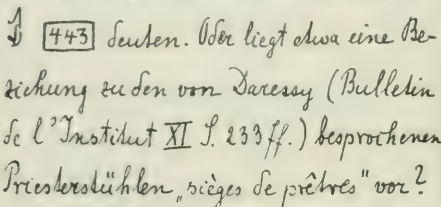 443 deuten. Oder liegt etwa eine Be-
ziehung zu den von Daressy (Bulletin
de l'Institut XI S. 233 ff.) besprochenen
Priesterstühlen „sièges de prêtres" vor?